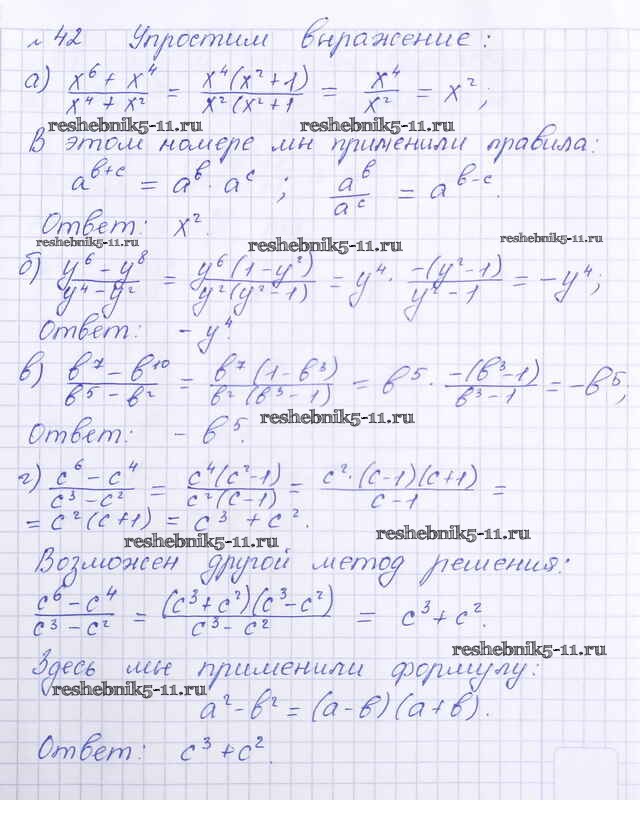 № 42 Упростим выражение:
а) (x⁶ + x⁴)/(x⁴ + x²) = (x⁴(x² + 1))/(x²(x² + 1) = x⁴/x² = x²;
reshebnik5-11.ru reshebnik5-11.ru
В этом номере мы применили правила:
a^(b+c) = a^b · a^c ; a^b/a^c = a^(b-c).
Ответ: x².
reshebnik5-11.ru reshebnik5-11.ru reshebnik5-11.ru
б) (y⁶ - y⁸)/(y⁴ - y²) = (y⁶(1 - y²))/(y²(y² - 1)) = y⁴ · (-(y² - 1))/(y² - 1) = -y⁴;
Ответ: - y⁴.
в) (b⁷ - b¹⁰)/(b⁵ - b²) = (b⁷(1 - b³))/(b²(b³ - 1)) = b⁵ · (-(b³ - 1))/(b³ - 1) = -b⁵;
reshebnik5-11.ru
Ответ: - b⁵.
г) (c⁶ - c⁴)/(c³ - c²) = (c⁴(c² - 1))/(c²(c - 1)) = (c² · (c - 1)(c + 1))/(c - 1) =
= c²(c + 1) = c³ + c².
reshebnik5-11.ru reshebnik5-11.ru
Возможен другой метод решения:
(c⁶ - c⁴)/(c³ - c²) = ((c³ + c²)(c³ - c²))/(c³ - c²) = c³ + c².
reshebnik5-11.ru
Здесь мы применили формулу:
reshebnik5-11.ru
a² - b² = (a - b)(a + b).
Ответ: c³ + c².